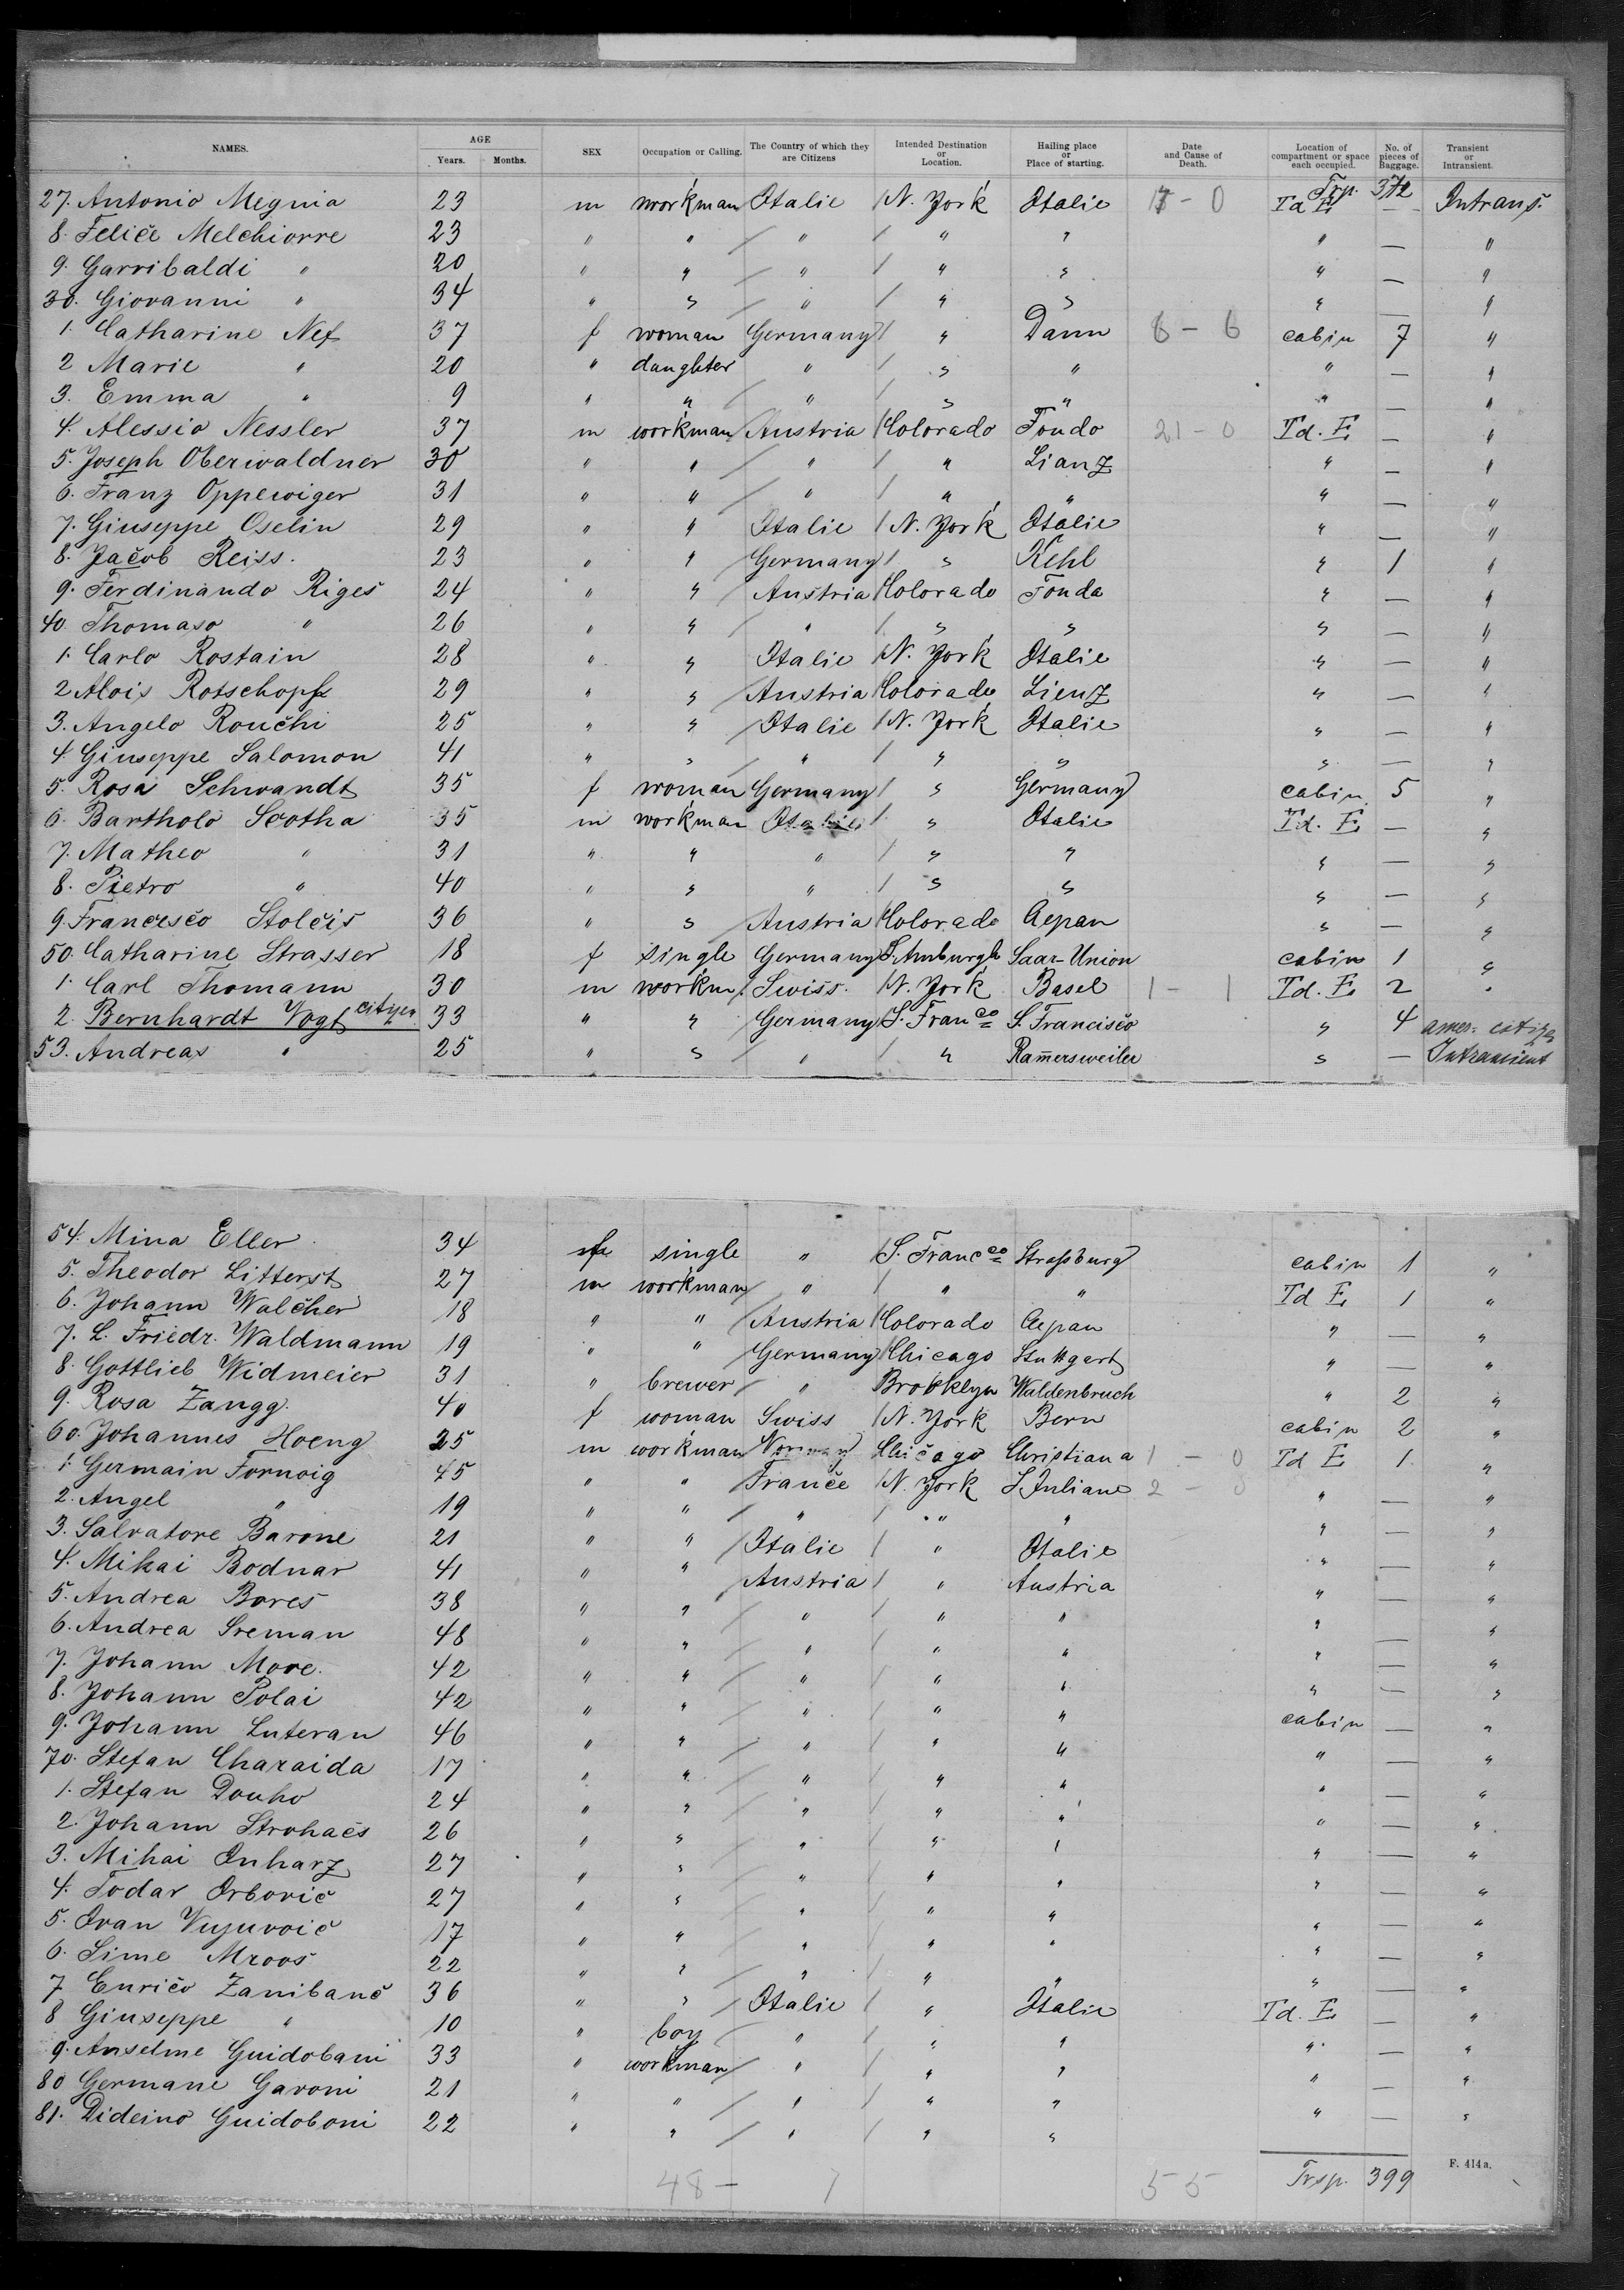 NAMES. AGE Years. Months. SEX Occupation or Calling. The Country of which they are Citizens Intended Destination or Location. Hailing place or Place of starting. Date and Cause of Death. Location of compartment or space each occupied. No. of pieces of Baggage. Transient or Intransient.
Trp. 372
27. Antonio Megnia 23 m workman Italie / N. York Italie - 0 Td E — Intrans.
8. Felice Melchiorre 23 " " / " / " " " — "
9. Garribaldi " 20 " " / " / " " " — "
30. Giovanni " 34 " " / " / " " " — "
1. Catharine Nef 37 f woman Germany / " Dann 6 - 6 cabin 7 "
2 Marie " 20 " daughter " / " " " — "
3. Emma " 9 " " " / " " " — "
4. Alessio Nessler 37 m workman / Austria / Colorado Fondo 21 - 0 Td. E — "
5. Joseph Oberwaldner 30 " " / " / " Lianz " — "
6. Franz Oppewiger 31 " " / " / " " " — "
7. Giuseppe Oselin 29 " " / Italie / N. York Italie " — "
8. Jacob Reiss. 23 " " / Germany / " Kehl " 1 "
9. Ferdinando Riges 24 " " / Austria / Colorado Fonda " — "
40. Thomaso " 26 " " / " / " " " — "
1. Carlo Rostain 28 " " / Italie / N. York Italie " — "
2 Alois Rotschopf 29 " " / Austria / Colorado Lienz " — "
3. Angelo Rouchi 25 " " / Italie / N. York Italie " — "
4. Giuseppe Salomon 41 " " / " / " " " — "
5. Rosa Schwandt 35 f woman Germany / " Germany cabin 5 "
6. Bartholo Scotha 35 m workman Italie / " Italie Td. E — "
7. Matheo " 31 " " " / " " " — "
8. Pietro " 40 " " " / " " " — "
9. Francesco Stolcis 36 " " / Austria / Colorado Aepan " — "
50. Catharine Strasser 18 f single Germany Saar-Union cabin 1 "
1. Carl Thomann 30 m workm. / Swiss. / N. York Basel 1 - 1 Td. E 2 "
2. Bernhardt Vogt citizen 33 " " / Germany / S. Franco S. Francisco " 4 amer. citizen
53. Andreas " 25 " " / " / " Ramersweiler " — Intransient
54. Mina Eller 34 f single " / S. Francco Straßburg cabin 1 "
5. Theodor Litterst 27 m workman / " / " " Td E 1 "
6. Johann Walcher 18 " " / Austria / Colorado Aepan " — "
7. L. Friedr. Waldmann 19 " " / Germany / Chicago Stuttgart " — "
8. Gottlieb Widmeier 31 " brewer / " Brooklyn Waldenbruch " 2 "
9. Rosa Zangg. 40 f woman Swiss / N. York Bern cabin 2 "
60. Johannes Hoeng 25 m workman / Norway Chicago Christiana 1 - 0 Td E 1 "
1. Germain Fornoig 45 " " / France / N. York S. Juliane 2 - 0 " — "
2. Angel " 19 " " / " / " " " — "
3. Salvatore Barone 21 " " / Italie / " Italie " — "
4. Mikai Bodnar 41 " " / Austria / " Austria " — "
5. Andrea Bores 38 " " / " / " " " — "
6. Andrea Sreman 48 " " / " / " " " — "
7. Johann More. 42 " " / " / " " " — "
8. Johann Polai 42 " " / " / " " " — "
9. Johann Luteran 46 " " / " / " " cabin — "
70. Stefan Charaida 17 " " / " / " " " — "
1. Stefan Douho 24 " " / " / " " " — "
2. Johann Strohacs 26 " " / " / " " " — "
3. Mihai Inharz 27 " " / " / " " " — "
4. Todar Orborič 27 " " / " / " " " — "
5. Ivan Vujuvoič 17 " " / " / " " " — "
6. Sime Mroos 22 " " / " / " " " — "
7 Enrico Zanibanc 36 " " / Italie / " Italie Td. E — "
8 Giuseppe " 10 " boy / " / " " " — "
9. Anselme Guidobani 33 " workman / " / " " " — "
80 Germane Garoni 21 " " / " / " " " — "
81. Dideino Guidoboni 22 " " / " / " "
48 - 7 55 Trsp. 399
F. 414a.